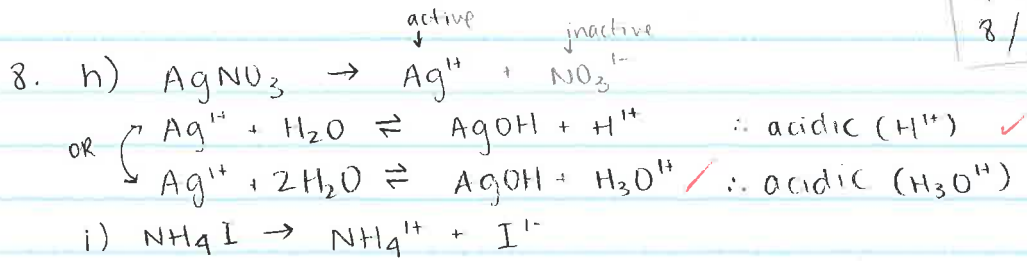 active inactive 8/
8. h) AgNO₃ → Ag¹⁺ + NO₃¹⁻
OR Ag¹⁺ + H₂O ⇌ AgOH + H¹⁺ ∴ acidic (H¹⁺) ✓
Ag¹⁺ + 2H₂O ⇌ AgOH + H₃O¹⁺ / ∴ acidic (H₃O¹⁺)
i) NH₄I → NH₄¹⁺ + I¹⁻